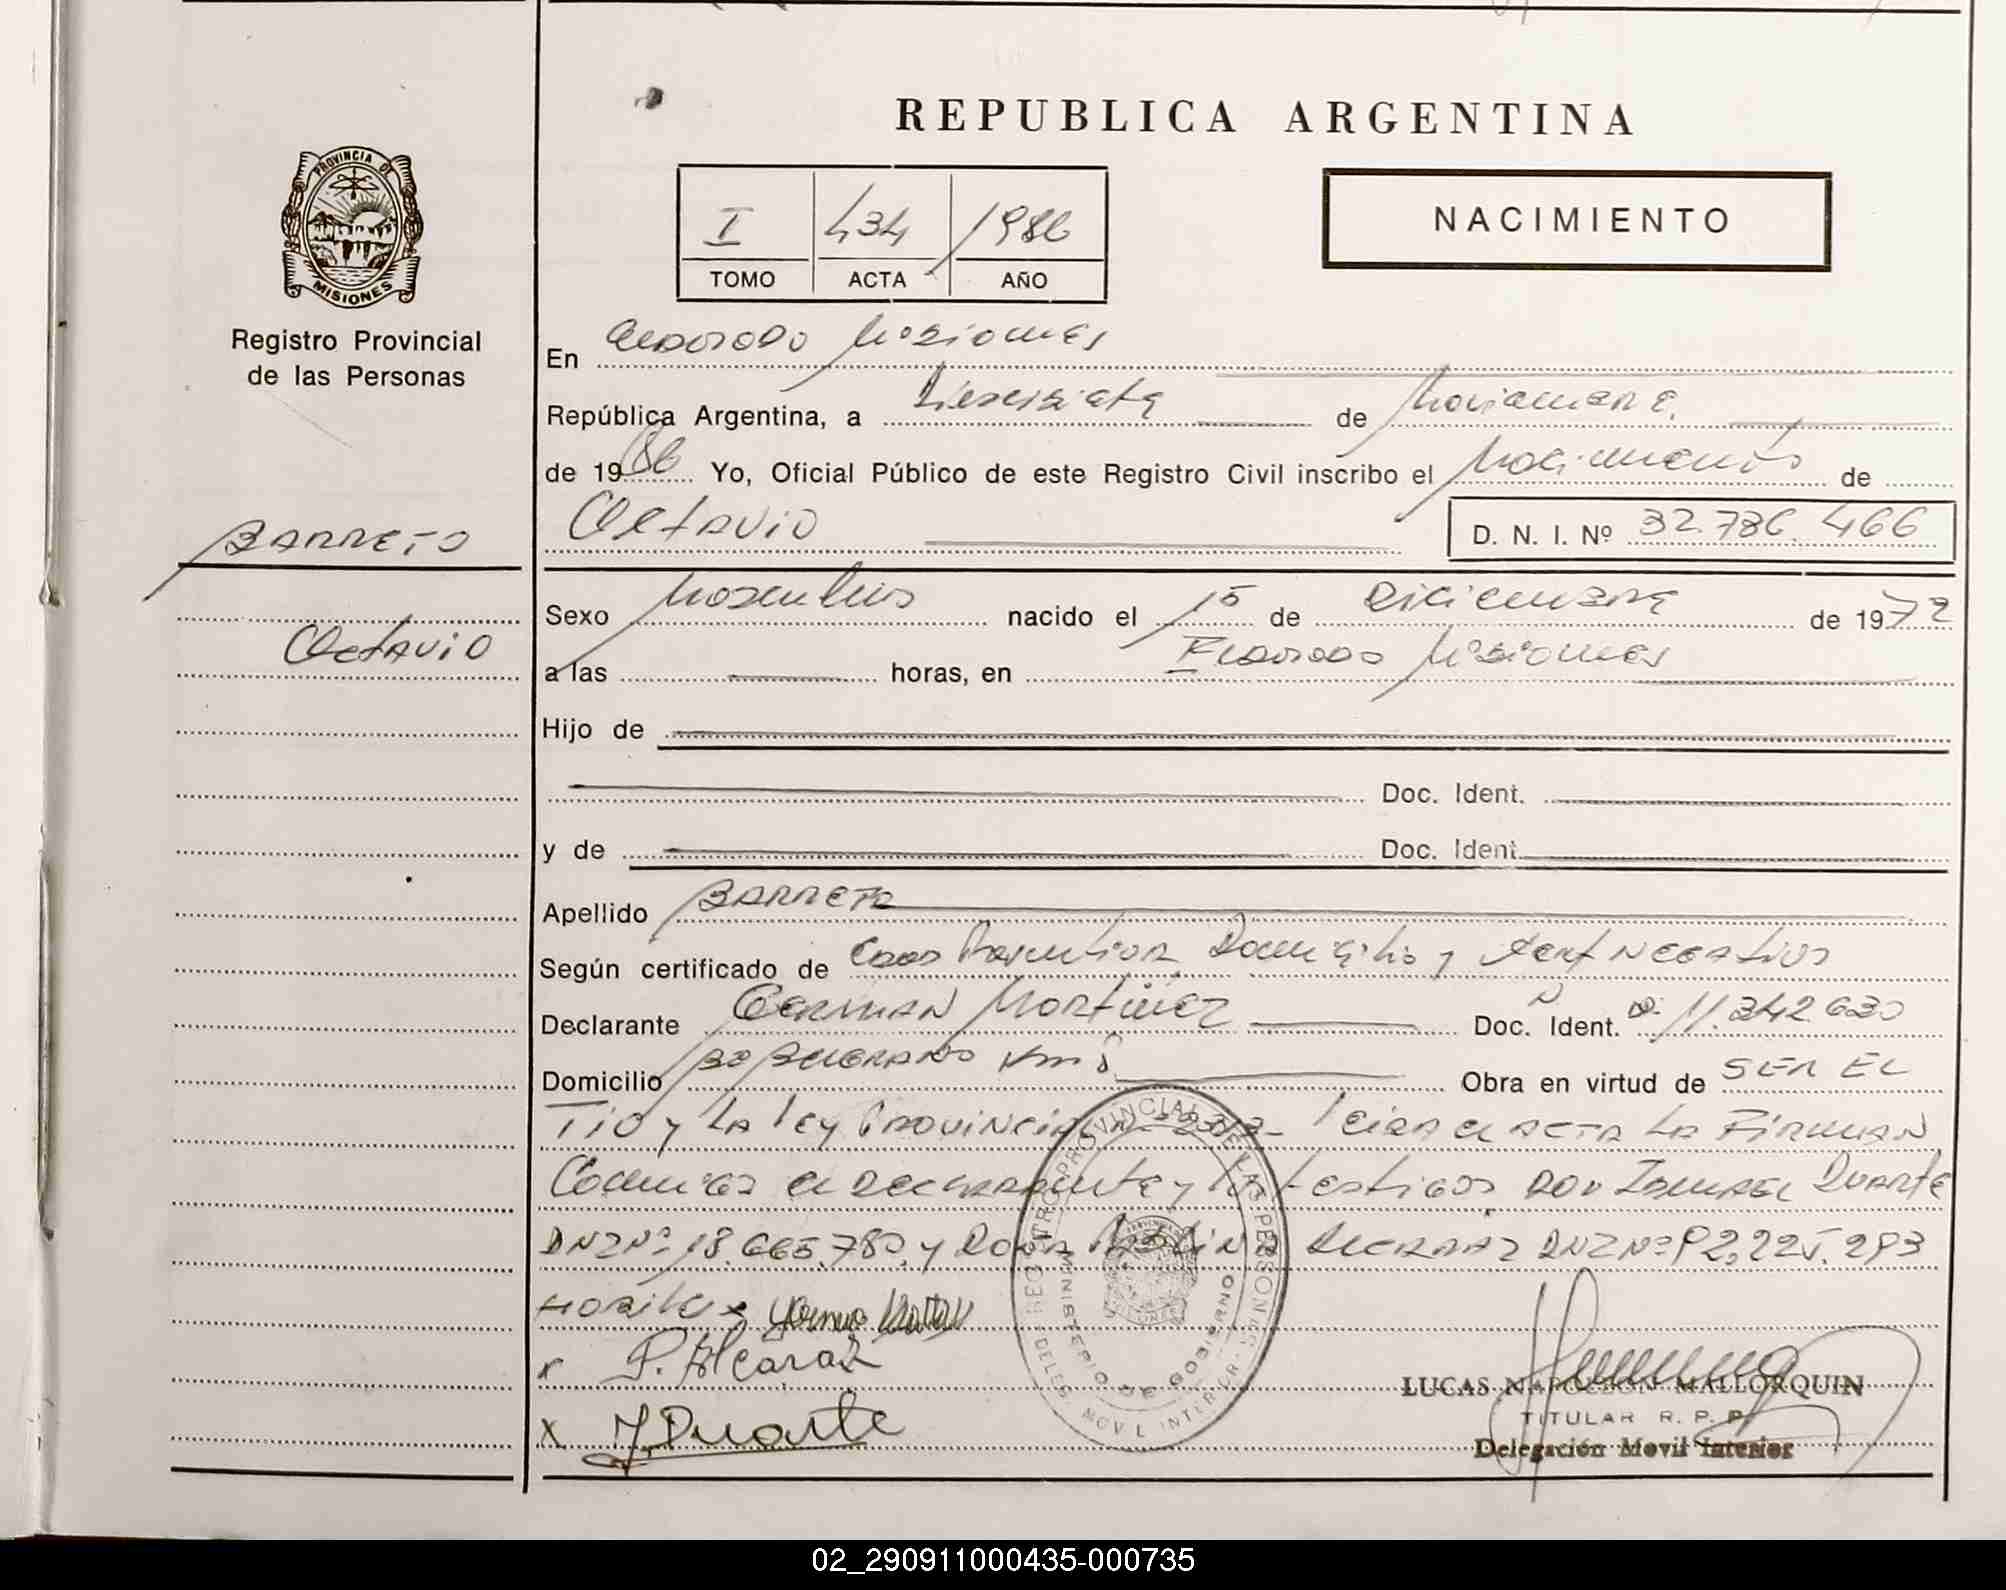 REPUBLICA ARGENTINA
PROVINCIA DE
MISIONES
Registro Provincial
de las Personas
I 434 1986
TOMO ACTA AÑO
NACIMIENTO
En Eldorado Misiones
República Argentina, a Diecisiete de Noviembre
de 1986 Yo, Oficial Público de este Registro Civil inscribo el Nacimiento de
BARRETO
Octavio D. N. I. Nº 32.786.466
Sexo Masculino nacido el 15 de Diciembre de 1972
Octavio
a las horas, en Eldorado Misiones
Hijo de
Doc. Ident.
y de Doc. Ident.
Apellido BARRETO
Según certificado de Domicilio y Negativos
Declarante German Martinez Doc. Ident. 11.342.630
Domicilio Bº Belgrano Km Obra en virtud de SER EL
TIO y LA Ley Provincial Leida el ACTA LA FIRMAN
Conmigo el Declarante y los testigos DON Ismael Duarte
DNI Nº 18.665.780, y Doña Alcaraz DNI Nº
x
x P. Alcaraz
x J. Duarte
REGISTRO PROVINCIAL DE LAS PERSONAS
MINISTERIO DE GOBIERNO
DELEG. MOVIL INTERIOR
LUCAS NAPOLEON MALLORQUIN
TITULAR R. P. P.
Delegación Movil Interior
02_290911000435-000735